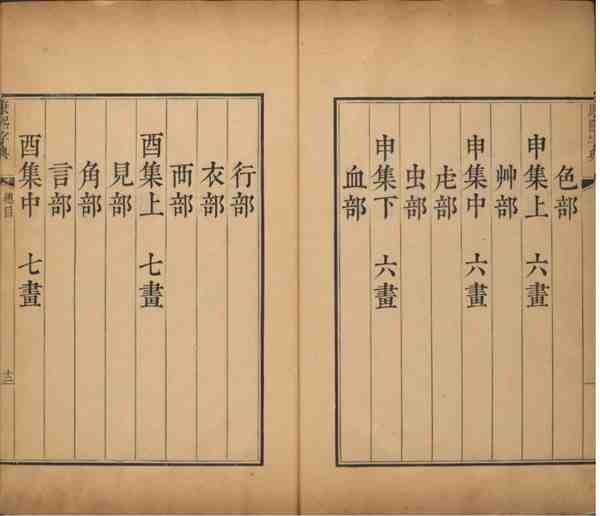 色部
申集上 六畫
艸部
申集中 六畫
虍部
虫部
申集下 六畫
血部
行部
衣部
襾部
酉集上 七畫
見部
角部
言部
酉集中 七畫
康熙字典
總目
十二